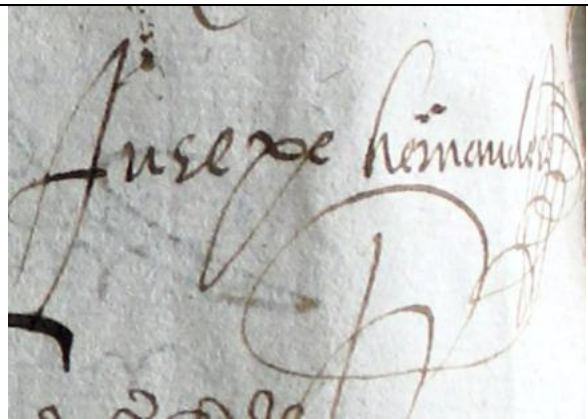 Jusepe hernandez